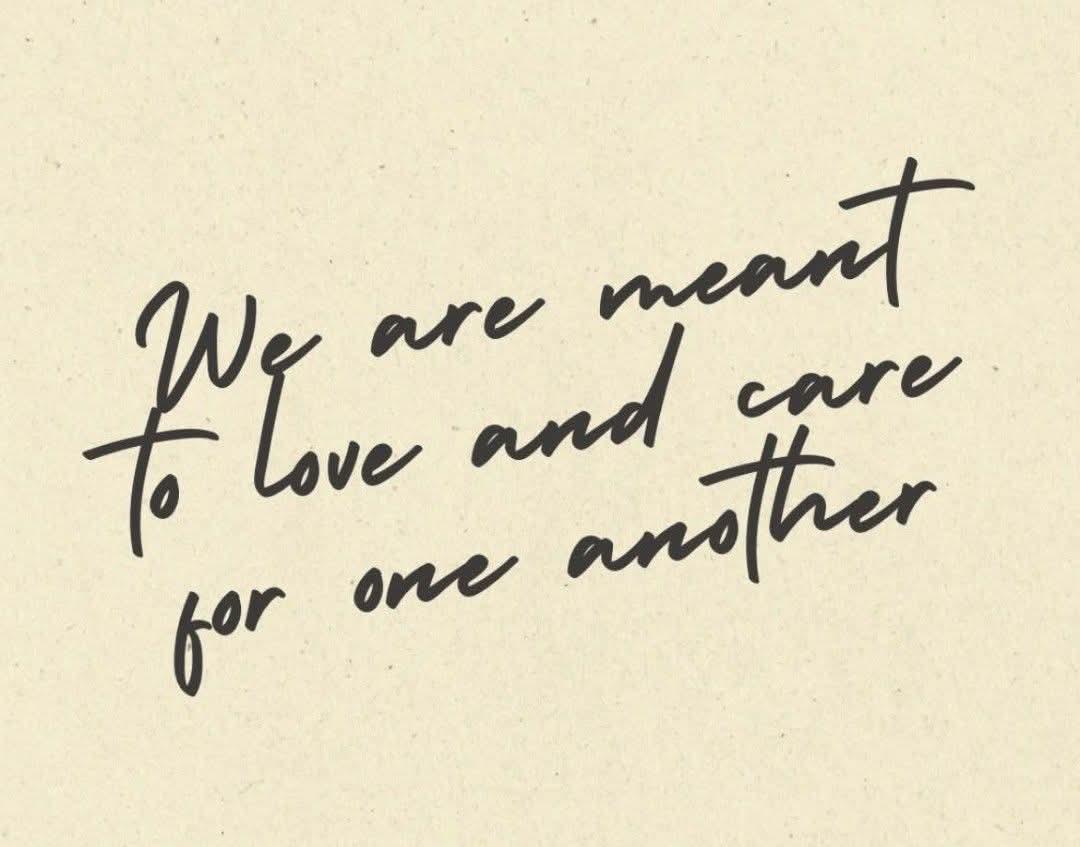 We are meant
to love and care
for one another